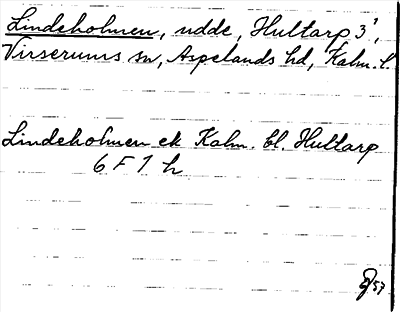 Lindeholmen, udde, Hultarp 3¹,
Virserums sn, Aspelands hd, Kalm. l.
Lindeholmen ek Kalm. bl. Hultarp
6 F 7 h
57